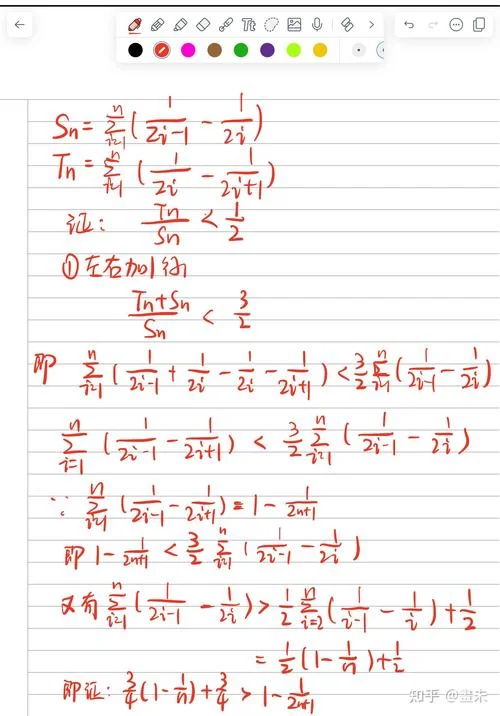 Sn = ∑_{i=1}^{n} (1/(2i-1) - 1/(2i))
Tn = ∑_{i=1}^{n} (1/(2i) - 1/(2i+1))
证: Tn/Sn < 1/2
① 左右加1得
(Tn+Sn)/Sn < 3/2
即 ∑_{i=1}^{n} (1/(2i-1) + 1/(2i) - 1/(2i) - 1/(2i+1)) < 3/2 ∑_{i=1}^{n} (1/(2i-1) - 1/(2i))
∑_{i=1}^{n} (1/(2i-1) - 1/(2i+1)) < 3/2 ∑_{i=1}^{n} (1/(2i-1) - 1/(2i))
∵ ∑_{i=1}^{n} (1/(2i-1) - 1/(2i+1)) = 1 - 1/(2n+1)
即 1 - 1/(2n+1) < 3/2 ∑_{i=1}^{n} (1/(2i-1) - 1/(2i))
又有 ∑_{i=1}^{n} (1/(2i-1) - 1/(2i)) > 1/2 ∑_{i=2}^{n} (1/(i-1) - 1/i) + 1/2
= 1/2 (1 - 1/n) + 1/2
即证: 3/4 (1 - 1/n) + 3/4 > 1 - 1/(2n+1)
知乎 @盡未